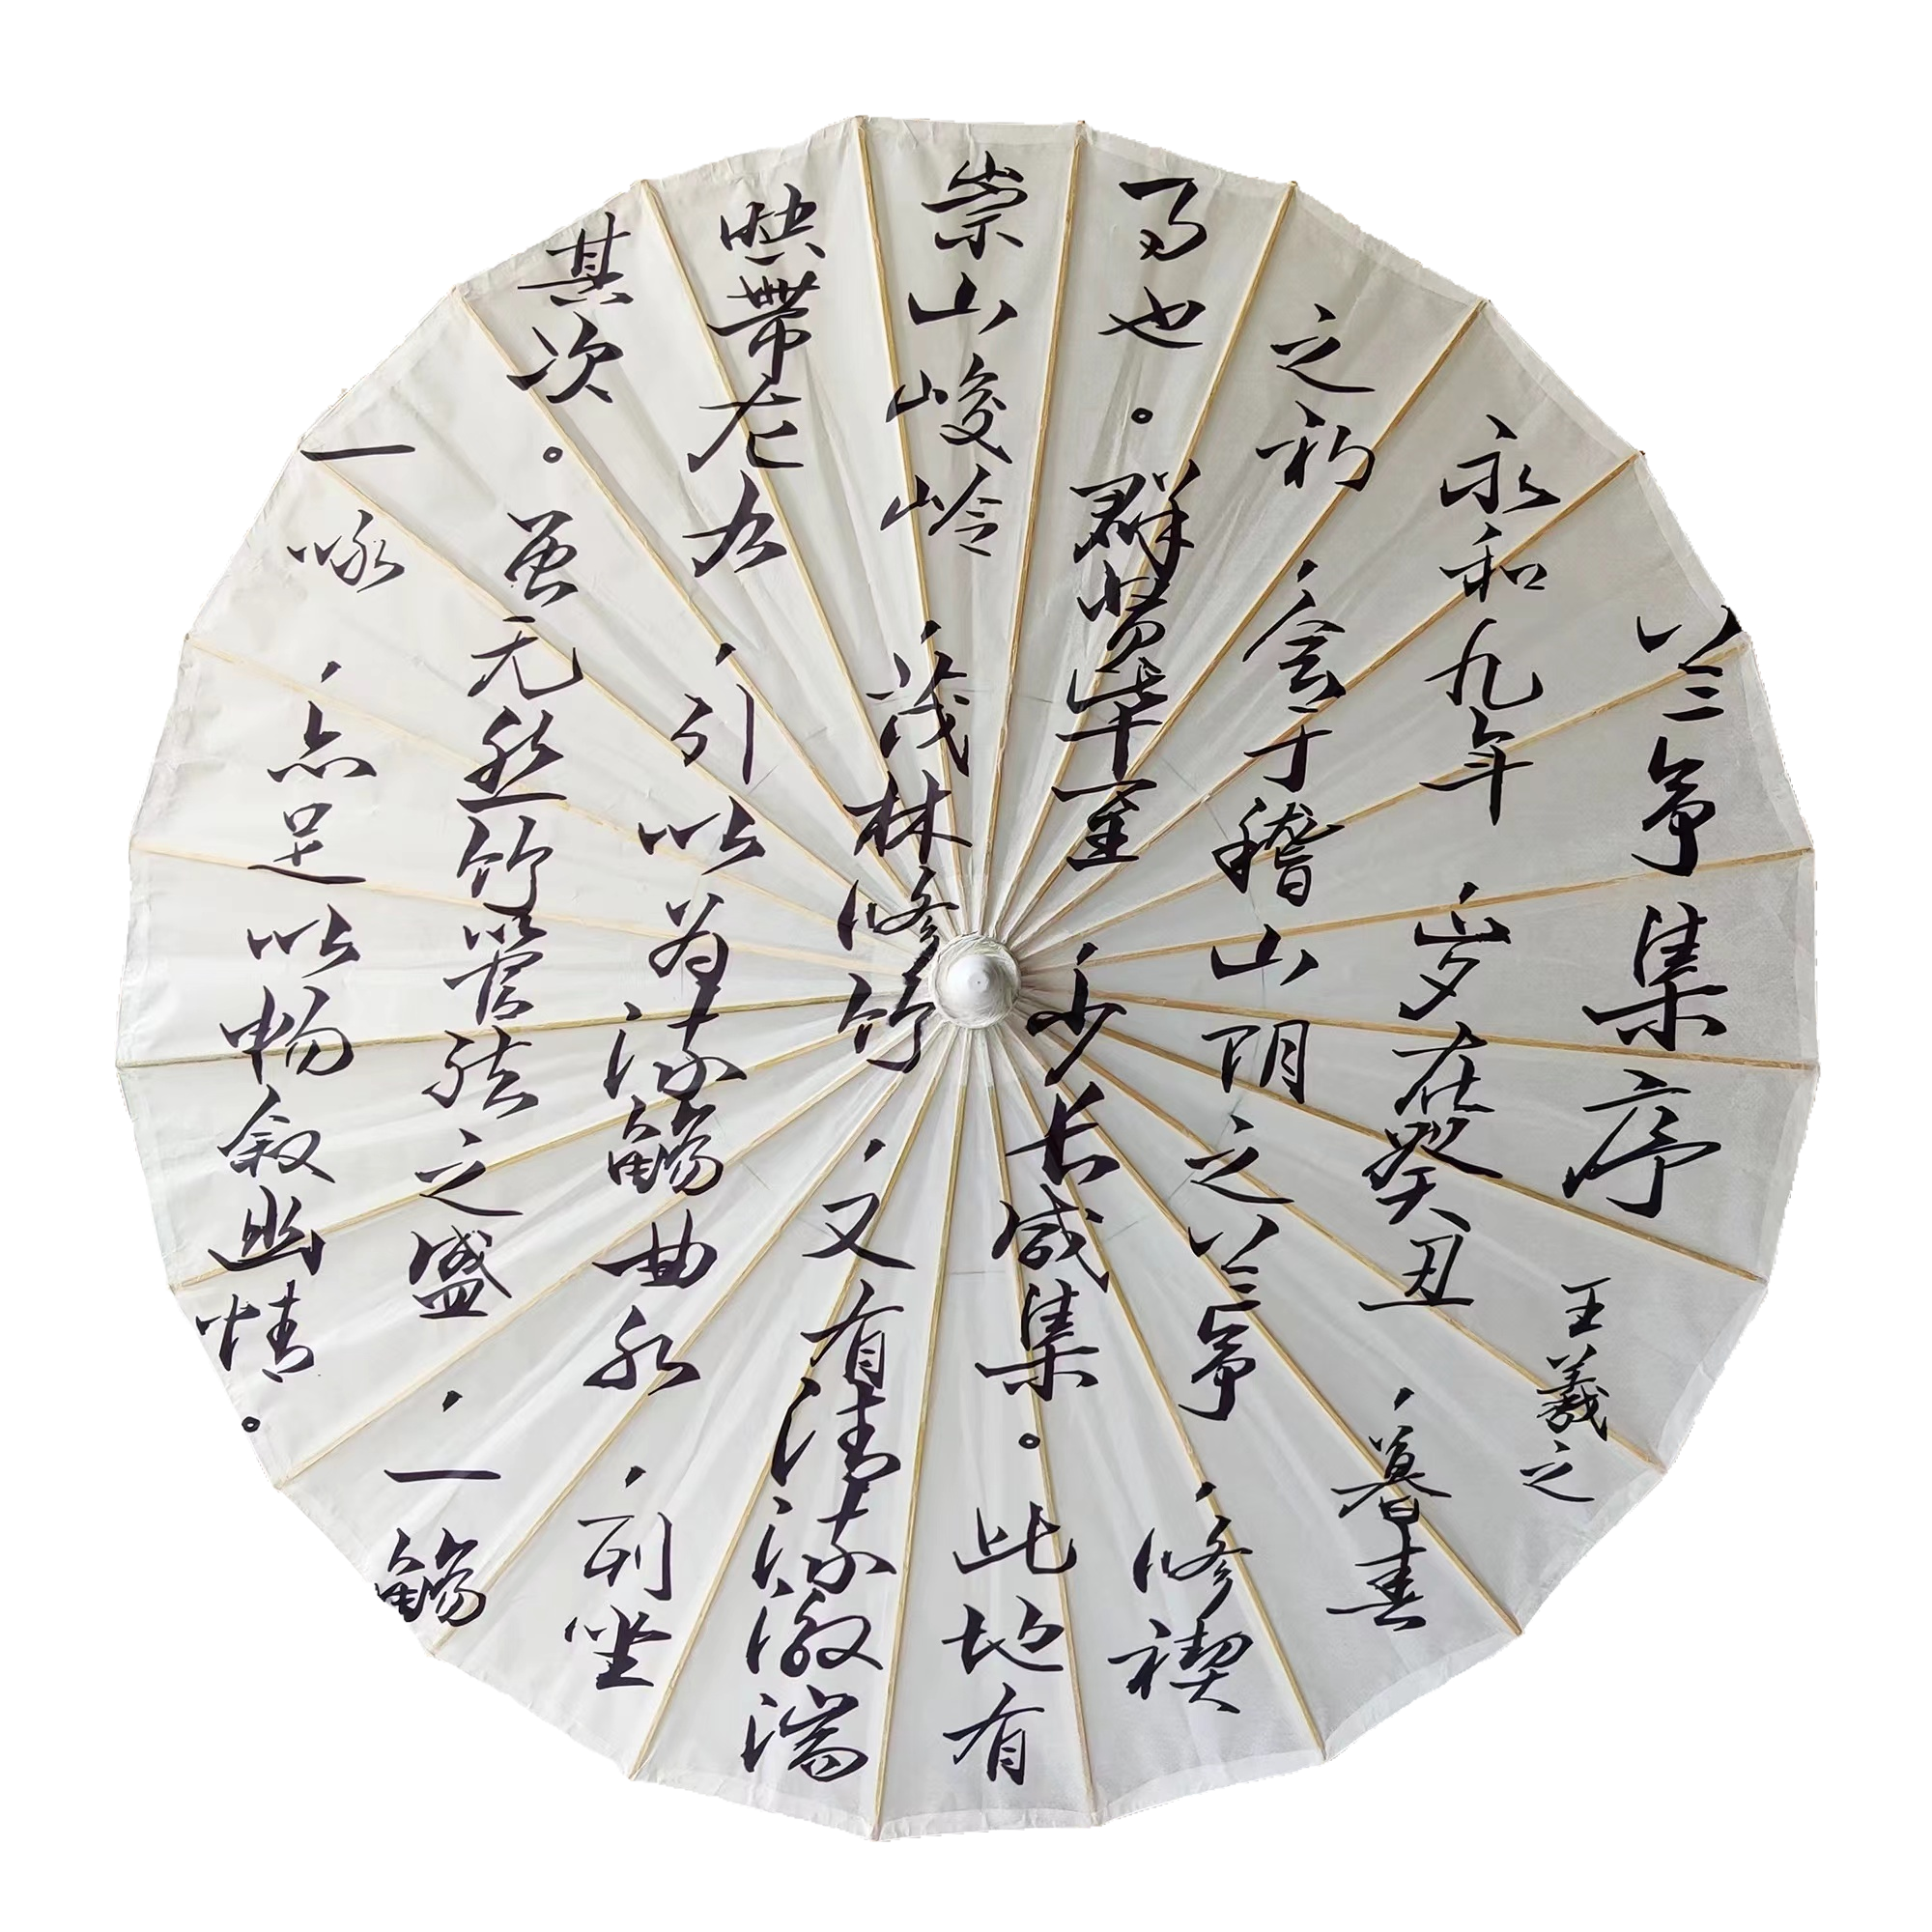 兰亭集序
王羲之
永和九年，岁在癸丑，暮春
之初，会于稽山阴之兰亭，修禊
事也。群贤毕至，少长咸集。此地有
崇山峻岭，茂林修竹，又有清流激湍
映带左右，引以为流觞曲水，列坐
其次。虽无丝竹管弦之盛，一觞
一咏，亦足以畅叙幽情。